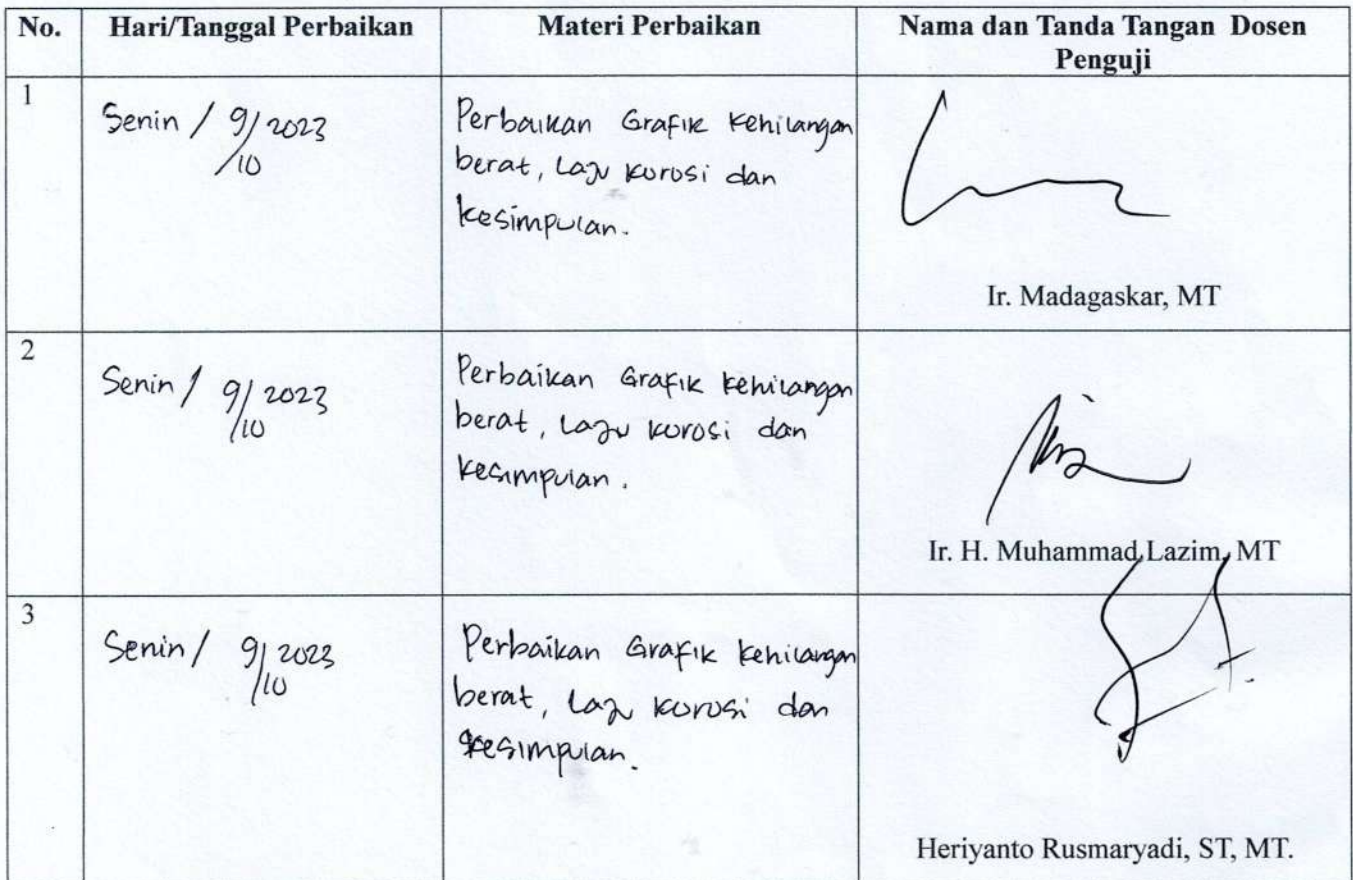 No. Hari/Tanggal Perbaikan Materi Perbaikan Nama dan Tanda Tangan Dosen
Penguji
1
Senin / 9/10 2023
Perbaikan Grafik kehilangan
berat, Laju korosi dan
kesimpulan.
Ir. Madagaskar, MT
2
Senin / 9/10 2023
Perbaikan Grafik kehilangan
berat, Laju korosi dan
kesimpulan.
Ir. H. Muhammad Lazim, MT
3
Senin / 9/10 2023
Perbaikan Grafik kehilangan
berat, Laju korosi dan
kesimpulan.
Heriyanto Rusmaryadi, ST, MT.